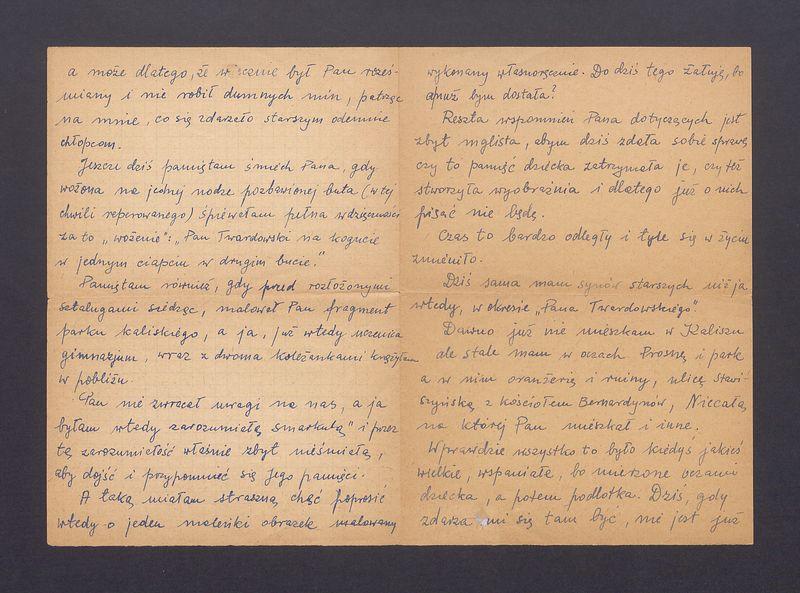 a może dlatego, że wiecznie był Pan roześ-
miany i nie robił dumnych min, patrząc
na mnie, co się zdarzało starszym odemnie
chłopcom.
Jeszcze dziś pamiętam śmiech Pana, gdy
wożona na jednej nodze pozbawionej buta (w tej
chwili reperowanego) śpiewałam pełna wdzięczności
za to „wożenie": „Pan Twardowski na kogucie
w jednym ciapciu w drugim bucie."
Pamiętam również, gdy przed rozłożonymi
sztalugami siedząc, malował Pan fragment
parku kaliskiego, a ja, już wtedy uczenica
gimnazjum, wraz z dwoma koleżankami krążyłam
w pobliżu.
Pan nie zwracał uwagi na nas, a ja
byłam wtedy zarozumiałą „smarkulą" i przez
tą zarozumiałość właśnie zbyt nieśmiałą,
aby dojść i przypomnieć się Jego pamięci.
A taką miałam straszną chęć poprosić
wtedy o jeden maleńki obrazek malowany
wykonany własnoręcznie. Do dziś tego żałuję, bo
anuż bym dostała?
Reszta wspomnień Pana dotyczących jest
zbyt mglista, abym dziś zdała sobie sprawę
czy to pamięć dziecka zatrzymała je, czy też
stworzyła wyobraźnia i dlatego już o nich
pisać nie będę.
Czas to bardzo odległy i tyle się w życiu
zmieniło.
Dziś sama mam synów starszych niż ja
wtedy, w okresie „Pana Twardowskiego".
Dawno już nie mieszkam w Kaliszu
ale stale mam w oczach Prosnę i park
a w nim oranżerię i ruiny, ulicę Stawi-
szyńską z kościołem Bernardynów, Niecałą
na której Pan mieszkał i inne.
Wprawdzie wszystko to było kiedyś jakieś
wielkie, wspaniałe, bo mierzone oczami
dziecka, a potem podlotka. Dziś, gdy
zdarza mi się tam być, nie jest już